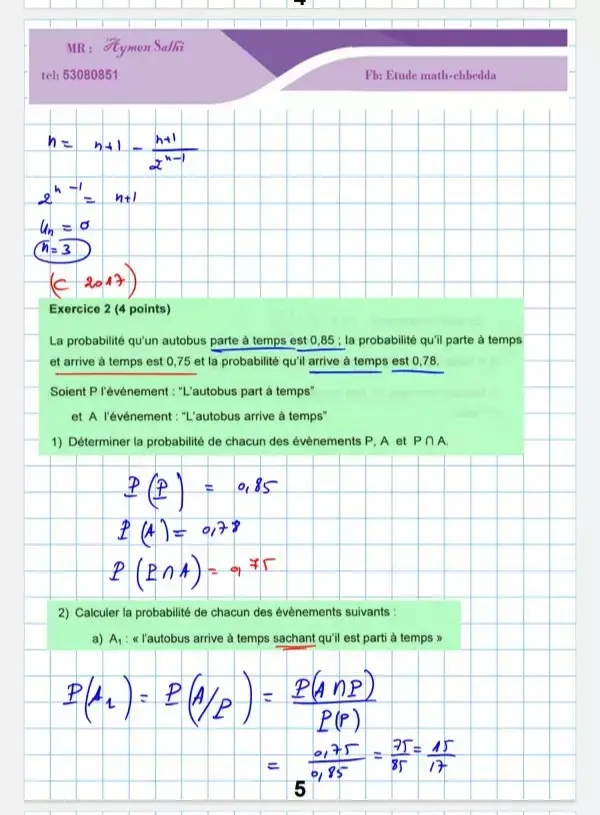 MR : Aymen Salhi
tel: 53080851
Fb: Etude math-chbedda
n = n+1 - n+1/2^n-1
2^n-1 = n+1
Un = 0
n=3
(C 2017)
Exercice 2 (4 points)
La probabilité qu'un autobus parte à temps est 0,85 ; la probabilité qu'il parte à temps
et arrive à temps est 0,75 et la probabilité qu'il arrive à temps est 0,78.
Soient P l'événement : "L'autobus part à temps"
et A l'événement : "L'autobus arrive à temps"
1) Déterminer la probabilité de chacun des évènements P, A et P ∩ A.
P(P) = 0,85
P(A) = 0,78
P(P∩A) = 0,75
2) Calculer la probabilité de chacun des évènements suivants :
a) A₁ : « l'autobus arrive à temps sachant qu'il est parti à temps »
P(A₁) = P(A/P) = P(A∩P)/P(P)
= 0,75/0,85 = 75/85 = 15/17
5